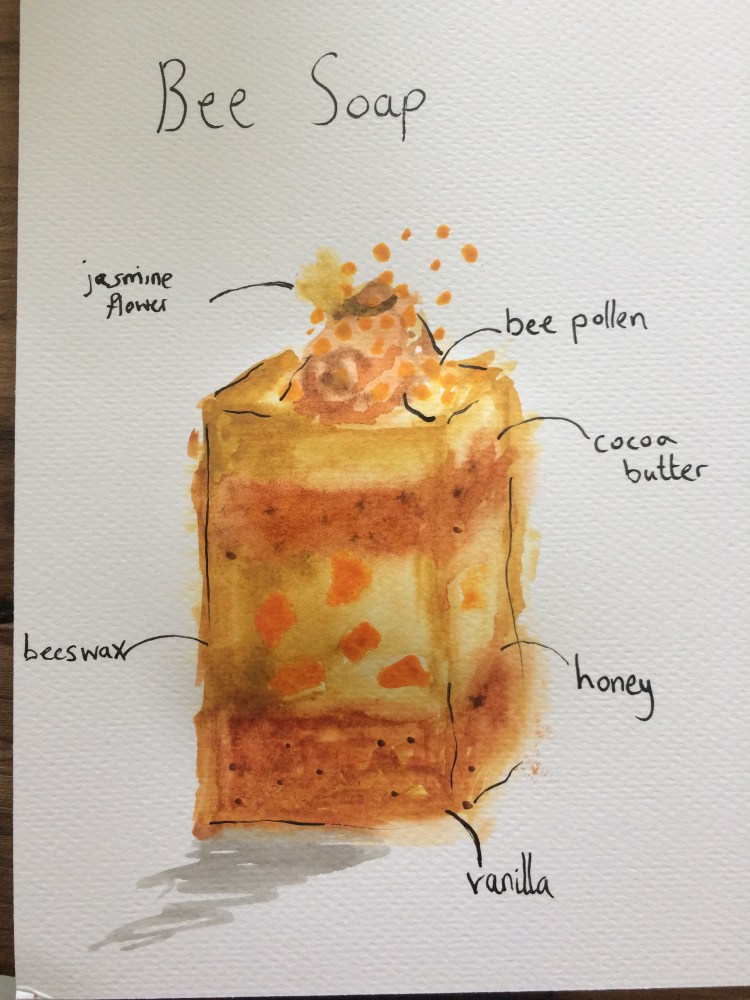 Bee Soap
jasmine
flower
bee pollen
cocoa
butter
beeswax
honey
vanilla